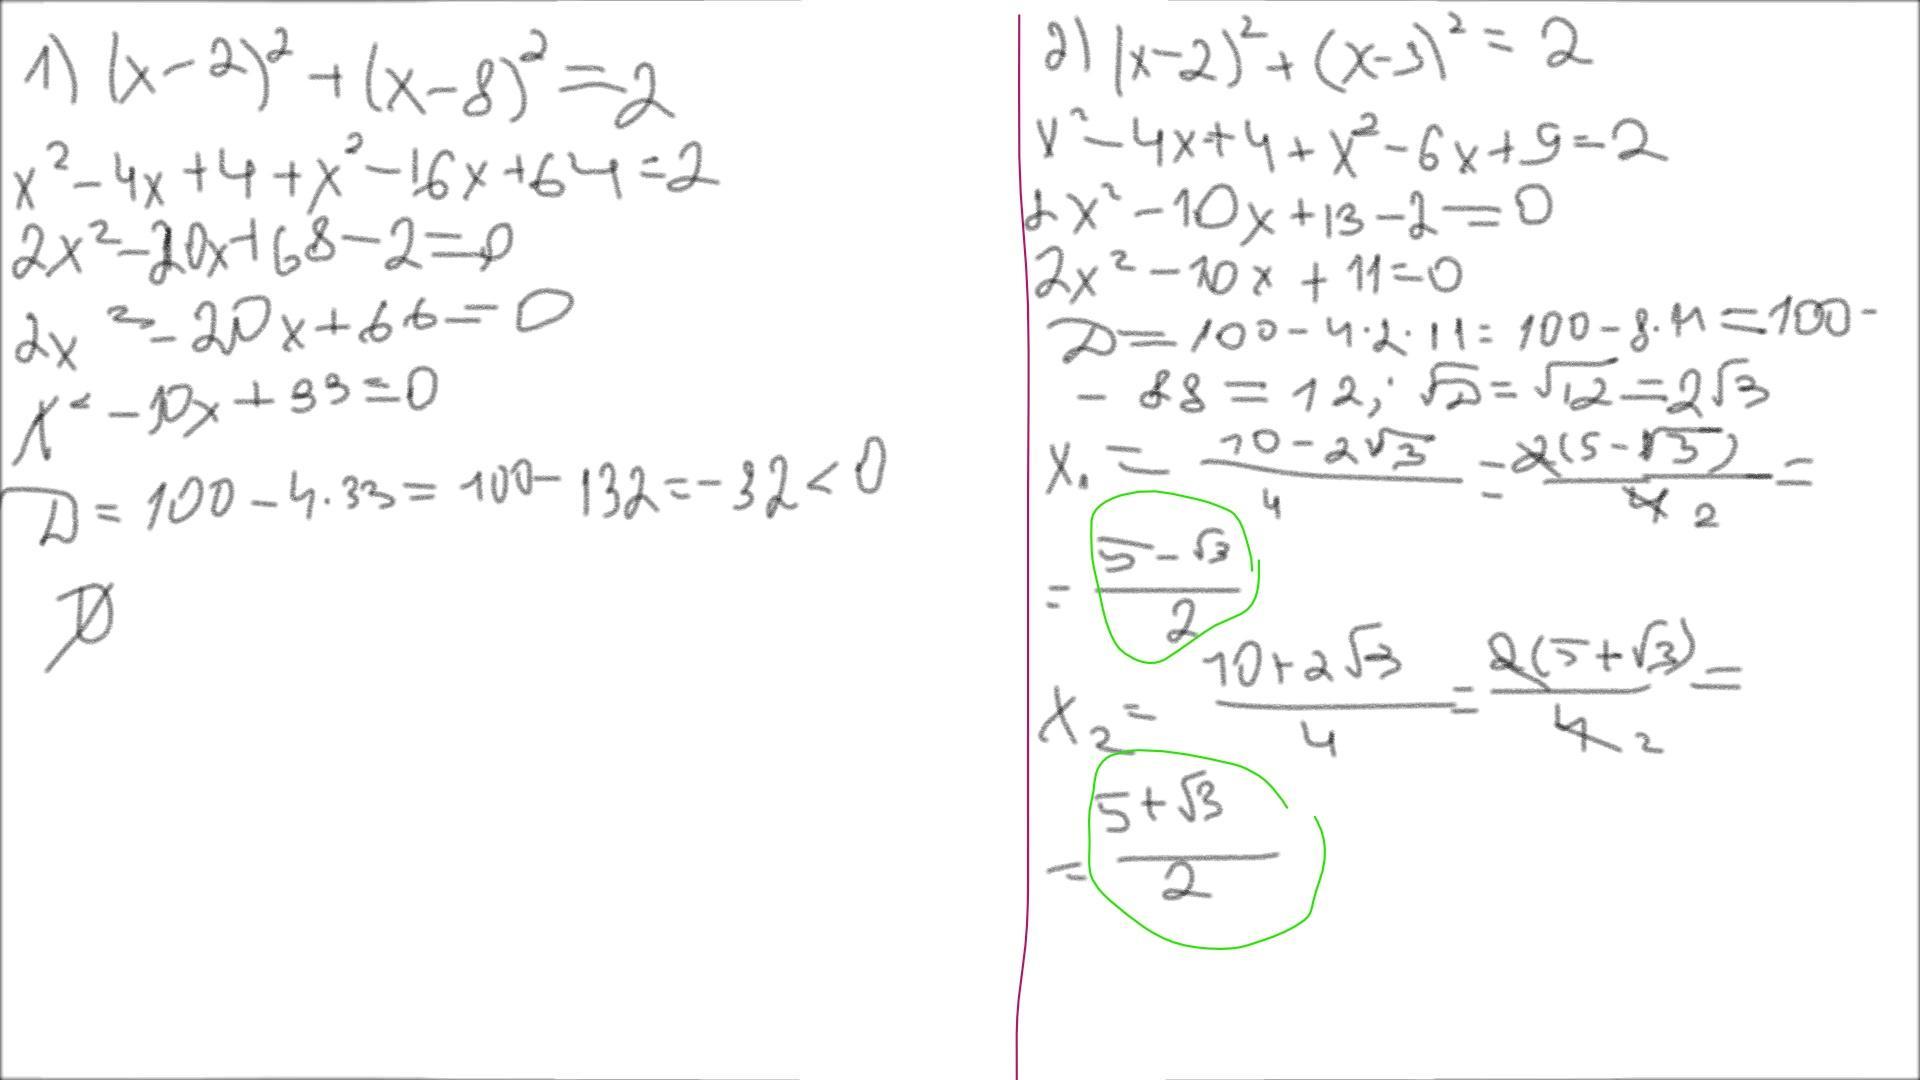 1) (x-2)² + (x-8)² = 2
x² - 4x + 4 + x² - 16x + 64 = 2
2x² - 20x + 68 - 2 = 0
2x² - 20x + 66 = 0
x² - 10x + 33 = 0
D = 100 - 4·33 = 100 - 132 = -32 < 0
∅
2) (x-2)² + (x-3)² = 2
x² - 4x + 4 + x² - 6x + 9 = 2
2x² - 10x + 13 - 2 = 0
2x² - 10x + 11 = 0
D = 100 - 4·2·11 = 100 - 8·11 = 100 -
- 88 = 12; √D = √12 = 2√3
x₁ = (10 - 2√3)/4 = 2(5 - √3)/4 2 =
= (5 - √3)/2
x₂ = (10 + 2√3)/4 = 2(5 + √3)/4 2 =
= (5 + √3)/2